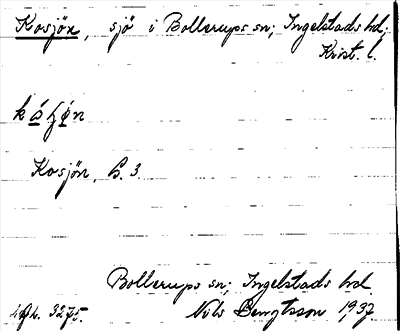 Kosjön, sjö i Bollerups sn; Ingelstads hd;
Krist. l.
Kosjön, h. 3.
Bollerups sn; Ingelstads hd.
Nils Bengtsson 1937